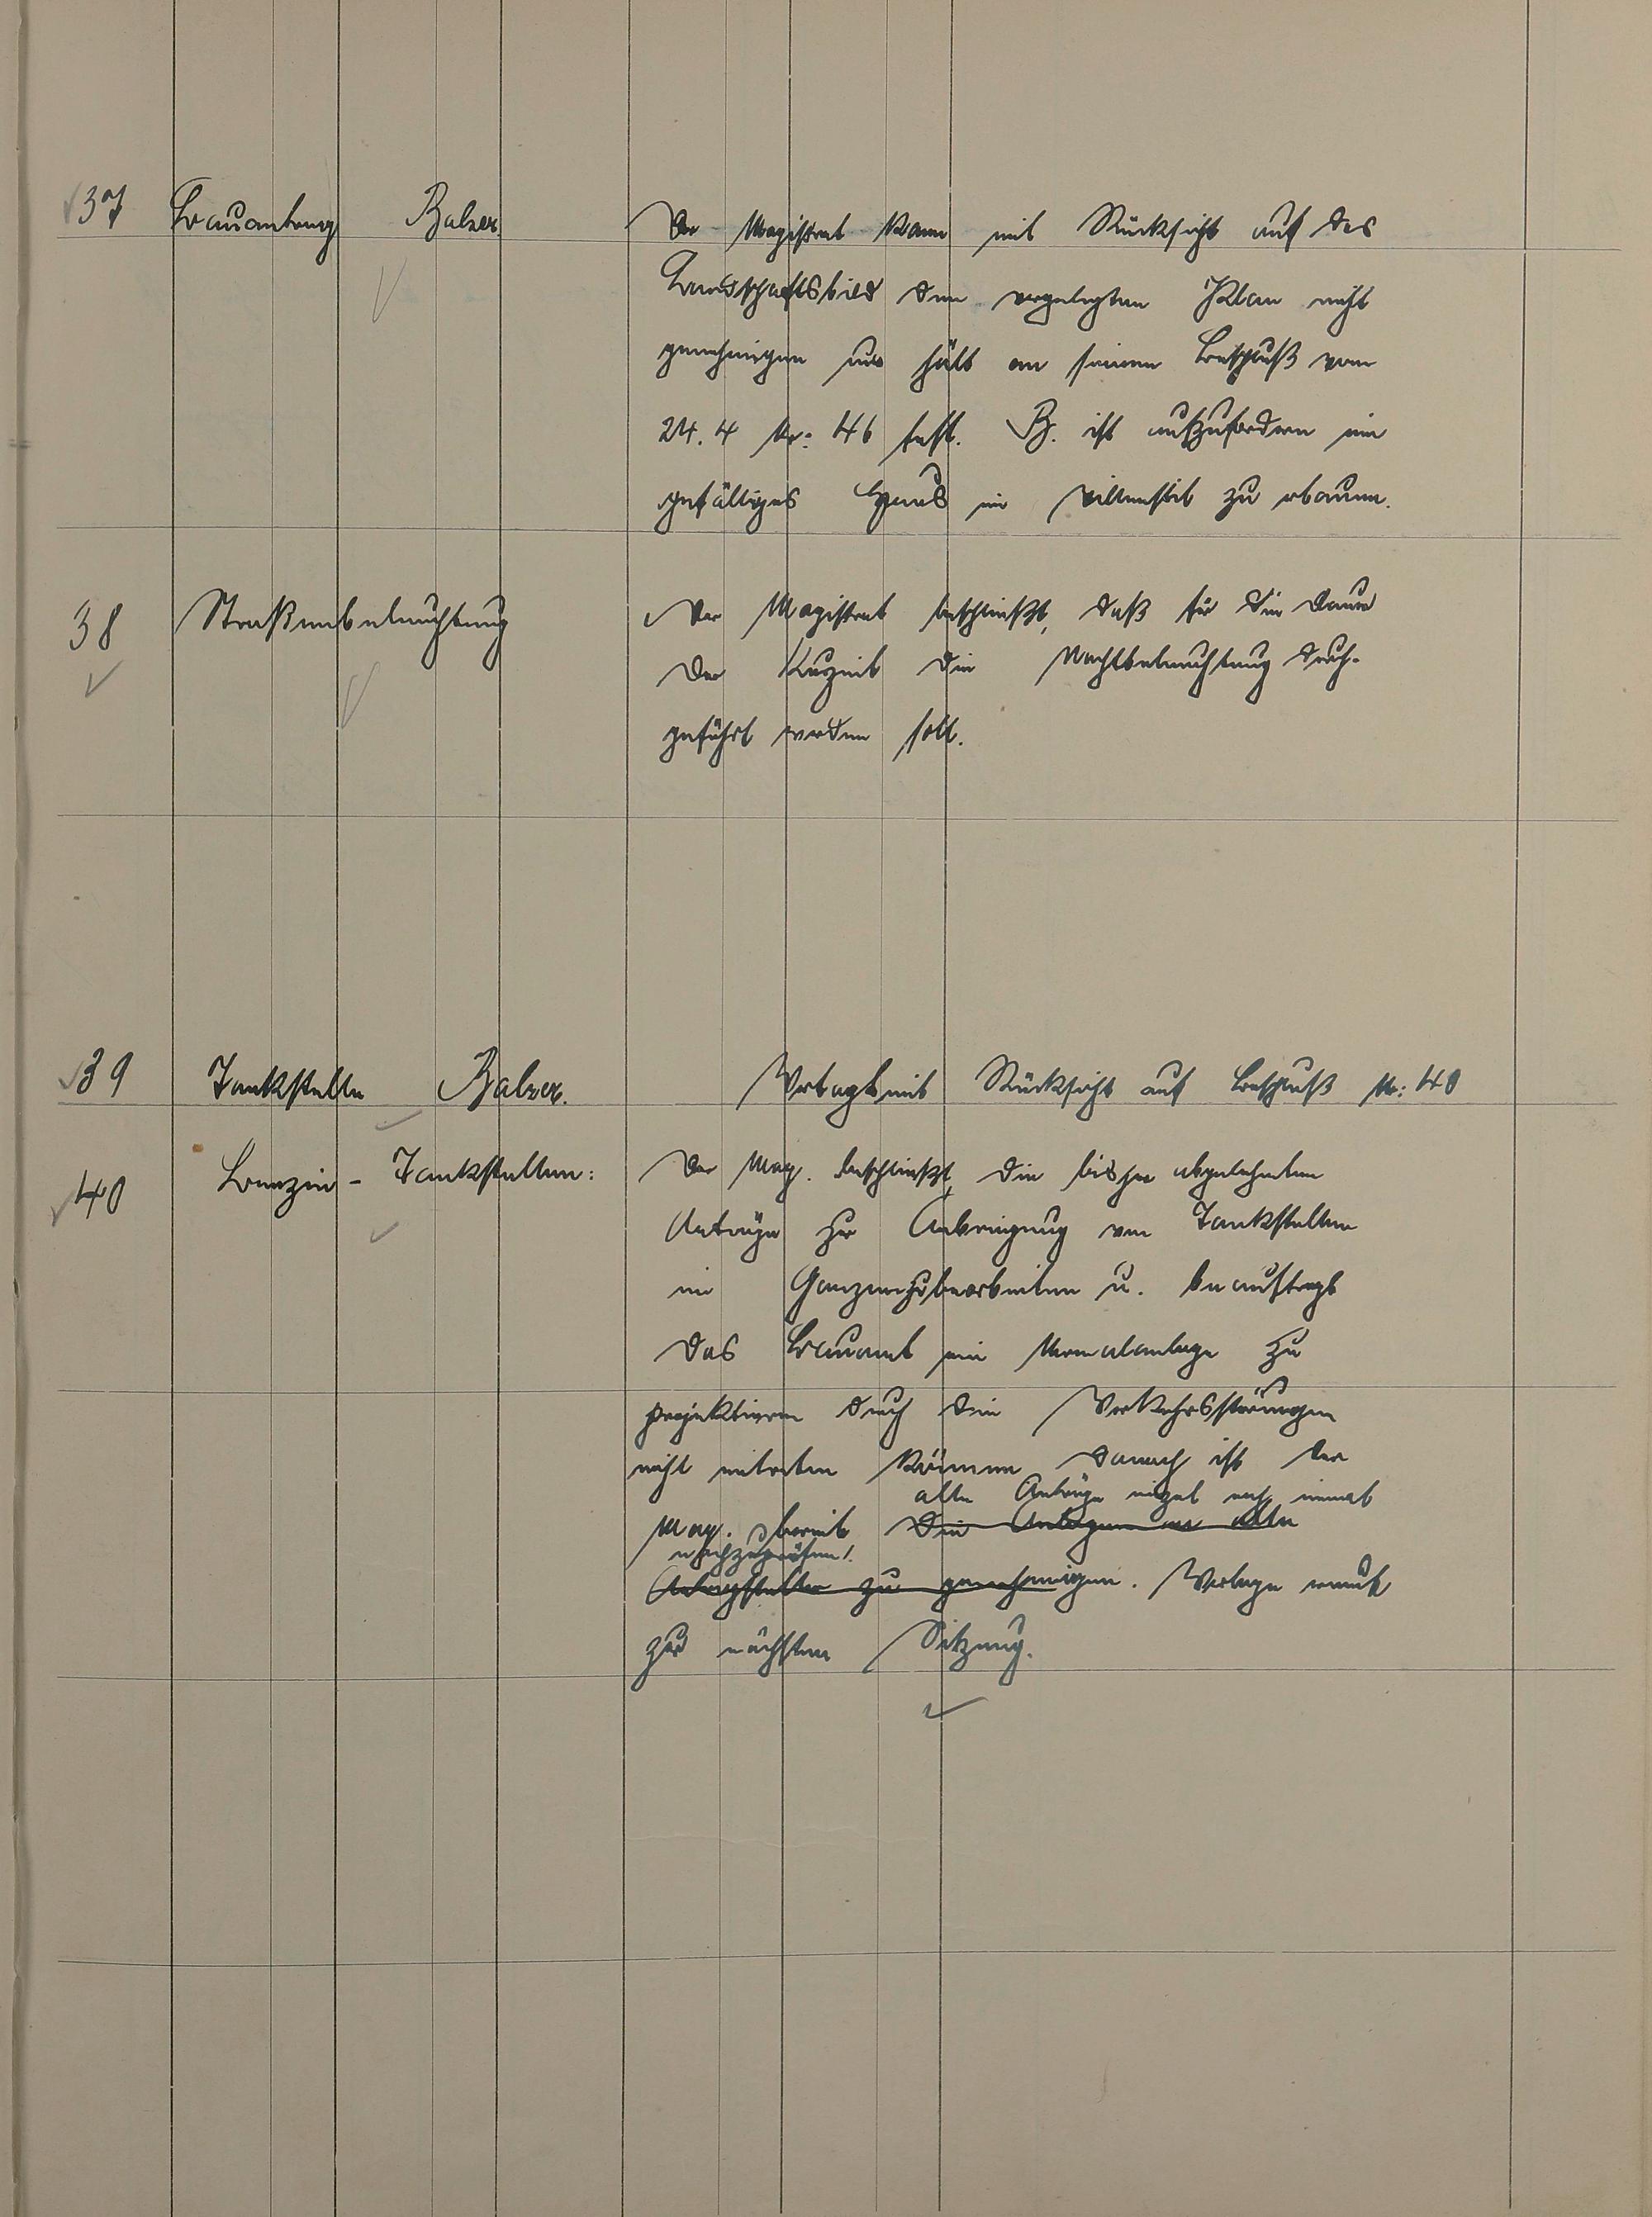 37 Bauantrag Balzer. Der Magistrat kann mit Rücksicht auf das
Landschaftsbild den vorgelegten Plan nicht
genehmigen und hält an seinem Beschluß vom
24. 4 Nr: 46 fest. B. ist aufzufordern ein
gefälliges Haus im Villenstil zu erbauen.
38 Straßenbeleuchtung Der Magistrat beschließt, daß für die Dauer
der Kurzeit die Nachtbeleuchtung durch-
geführt werden soll.
39 Tankstelle Balzer. Vertagt mit Rücksicht auf Beschluß Nr: 40
40 Benzin-Tankstellen: Der Mag. beschließt, die bisher abgelehnten
Anträge zur Anbringung von Tankstellen
im Ganzen zu bearbeiten u. beauftragt
das Bauamt eine Normalanlage zu
projektieren durch die Verkehrsstörungen
nicht eintreten können danach ist der
alle Anträge einzel noch einmal
Mag. bereit die Anlagen an alle
nachzuprüfen!
Antragsteller zu genehmigen. Vorlage erneut
zur nächsten Sitzung.